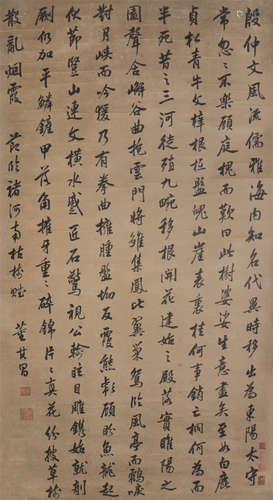 殷仲文風流儒雅海内知名代異時移出為東陽太守
常忽〻不樂顧庭槐而歎曰此樹婆娑生意盡矣至如白鹿
貞松青牛文梓根柢盤魄山崖表裏桂何事銷亡桐何為而
半死昔之三河徙殖九畹移根開花建始之殿落實睢陽之
園聲含嶰谷曲抱雲門將雛集鳳比翼巢鴛臨風亭而鶴唳
對月峽而吟猨乃有拳曲擁腫盤坳反覆熊彪顧盼魚龍起
伏節豎山連文橫水蹙匠石驚視公輸眩目雕鐫始就剞
劂仍加平鱗鏟甲落角摧牙重〻碎錦片〻真花紛披草樹
散亂烟霞 節臨褚河南枯樹賦 董其昌